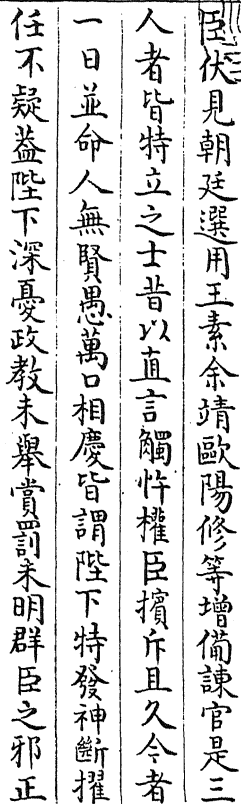 臣伏見朝廷選用王素余靖歐陽修等增備諫官是三
人者皆特立之士昔以直言觸忤權臣擯斥且久今者
一日並命人無賢愚萬口相慶皆謂陛下特發神斷擢
任不疑葢陛下深憂政教未舉賞罰未明群臣之邪正